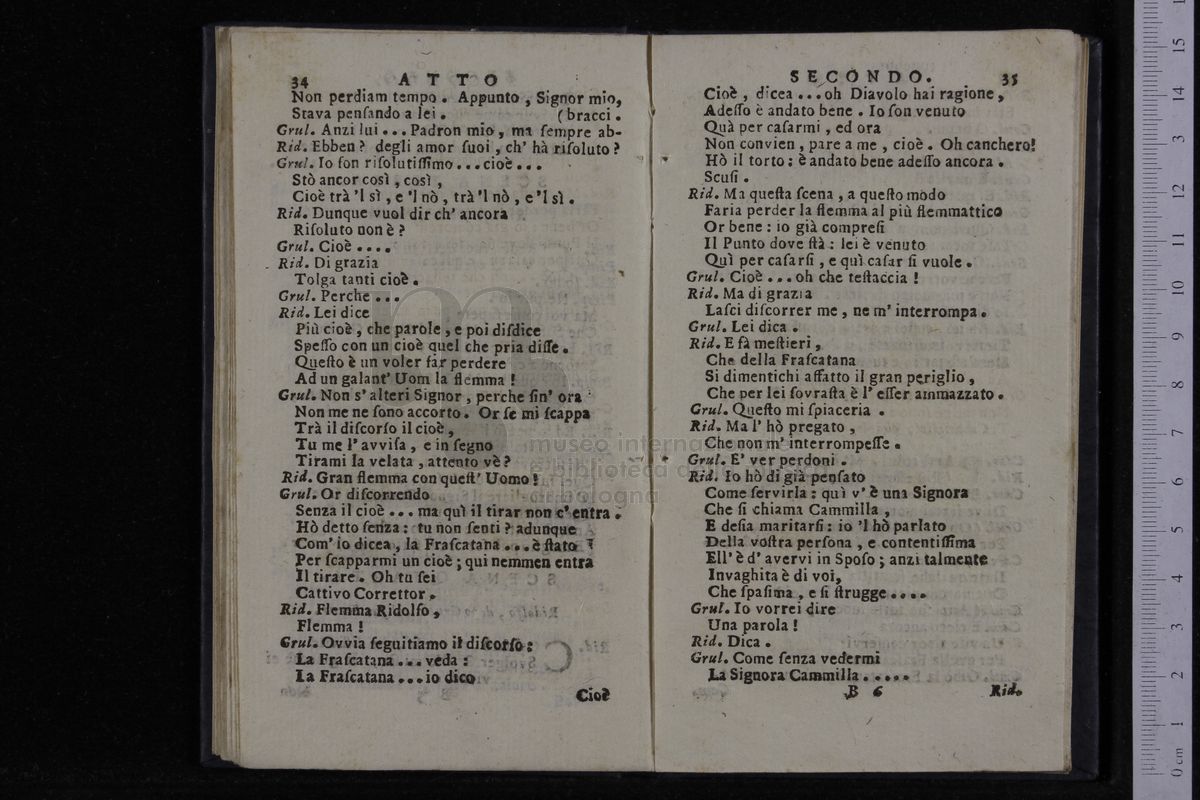 34 ATTO
Non perdiam tempo. Appunto, Signor mio,
Stava penſando a lei. (bracci.
Grul. Anzi lui... Padron mio, ma ſempre ab-
Rid. Ebben? degli amor ſuoi, ch' hà riſoluto?
Grul. Io ſon riſolutiſſimo...cioè...
Stò ancor così, così,
Cioè trà 'l sì, e 'l nò, trà 'l nò, e 'l sì.
Rid. Dunque vuol dir ch' ancora
Riſoluto non è?
Grul. Cioè....
Rid. Di grazia
Tolga tanti cioè.
Grul. Perche...
Rid. Lei dice
Più cioè, che parole, e poi diſdice
Speſſo con un cioè quel che pria diſſe.
Queſto è un voler far perdere
Ad un galant' Uom la flemma!
Grul. Non s' alteri Signor, perche ſin' ora
Non me ne ſono accorto. Or ſe mi ſcappa
Trà il diſcorſo il cioè,
Tu me l' avviſa, e in ſegno
Tirami la velata, attento vè?
Rid. Gran flemma con queſt' Uomo!
Grul. Or diſcorrendo
Senza il cioè... ma quì il tirar non c' entra.
Hò detto ſenza: tu non ſenti? adunque
Com' io dicea, la Fraſcatana...è ſtato
Per ſcapparmi un cioè; qui nemmen entra
Il tirare. Oh tu ſei
Cattivo Correttor.
Rid. Flemma Ridolfo,
Flemma!
Grul. Ovvia ſeguitiamo il diſcorſo:
La Fraſcatana... veda:
La Fraſcatana...io dico
Cioè
SECONDO. 35
Cioè, dicea...oh Diavolo hai ragione,
Adeſſo è andato bene. Io ſon venuto
Quà per caſarmi, ed ora
Non convien, pare a me, cioè. Oh canchero!
Hò il torto: è andato bene adeſſo ancora.
Scuſi.
Rid. Ma queſta ſcena, a queſto modo
Faria perder la flemma al più flemmattico
Or bene: io già compreſi
Il Punto dove ſtà: lei è venuto
Quì per caſarſi, e quì caſar ſi vuole.
Grul. Cioè...oh che teſtaccia!
Rid. Ma di grazia
Laſci diſcorrer me, ne m' interrompa.
Grul. Lei dica.
Rid. E fà meſtieri,
Che della Fraſcatana
Si dimentichi affatto il gran periglio,
Che per lei ſovraſta è l' eſſer ammazzato.
Grul. Queſto mi ſpiaceria.
Rid. Ma l' hò pregato,
Che non m' interrompeſſe.
Grul. E' ver perdoni.
Rid. Io hò di già penſato
Come ſervirla: quì v' è una Signora
Che ſi chiama Cammilla,
E deſia maritarſi: io 'l hò parlato
Della voſtra perſona, e contentiſſima
Ell' è d' avervi in Spoſo; anzi talmente
Invaghita è di voi,
Che ſpaſima, e ſi ſtrugge....
Grul. Io vorrei dire
Una parola!
Rid. Dica.
Grul. Come ſenza vedermi
La Signora Cammilla.....
B 6 Rid.